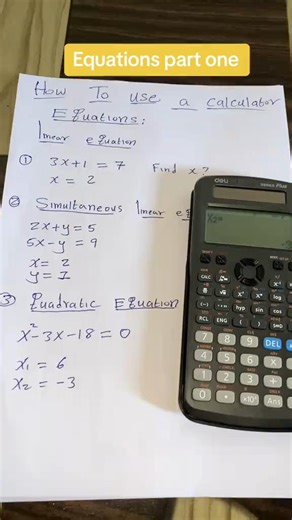 Equations part one
How To use a calculator
Equations:
linear equation
① 3x+1 = 7 Find x?
x = 2
② Simultaneous linear
2x+y = 5
5x-y = 9
x = 2
y = 1
③ Quadratic Equation
x²-3x-18 = 0
x₁ = 6
x₂ = -3
deli
X2=
RCL ENG ( )
7 8 9 DEL
4 5 6
1 2 3
0 Ans